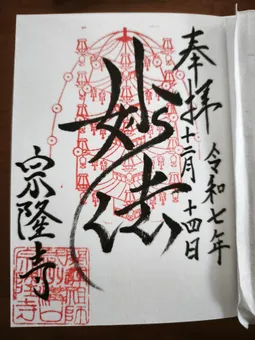 奉拝
令和七年
十二月十四日
妙法
宗隆寺